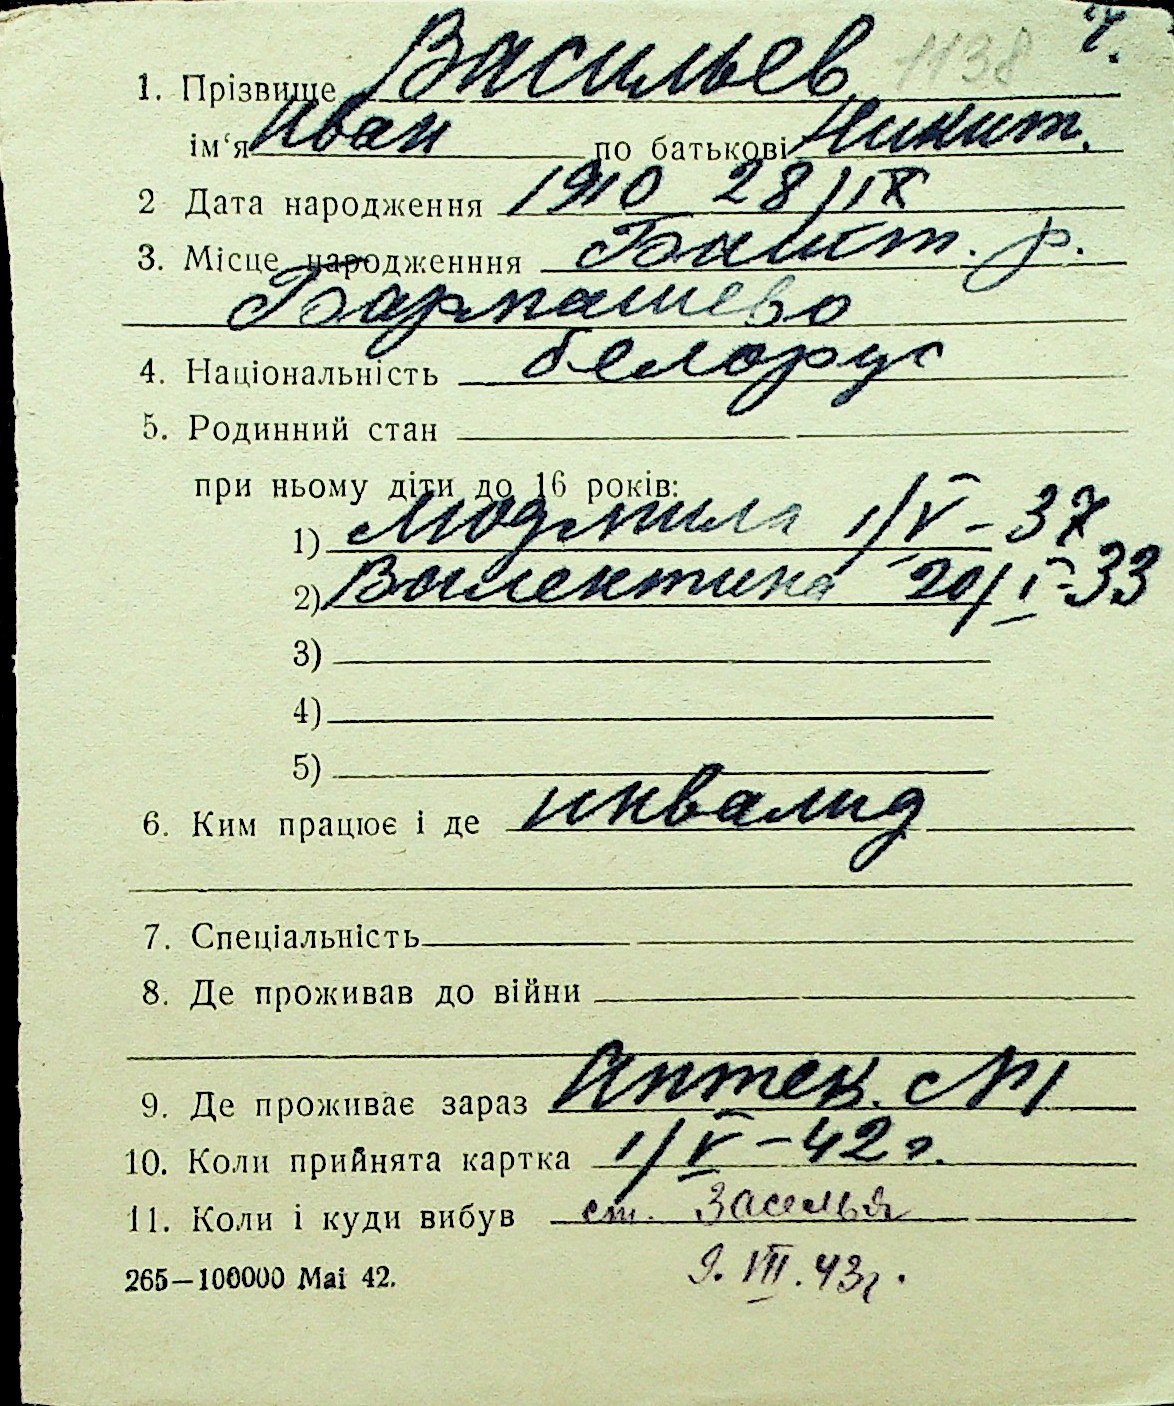 Ч.
1. Прізвище Васильев 1138
ім‘я Иван по батькові Никит.
2 Дата народження 1910 28/IX
3. Місце народженння Башт. р.
Бармашево
4. Національність белорус
5. Родинний стан
при ньому діти до 16 років:
1) Людмила 1/V – 37
2) Валентина 20/I-33
3)
4)
5)
6. Ким працює і де инвалид
7. Спеціальність
8. Де проживав до війни
9. Де проживає зараз Аптек. №1
10. Коли прийнята картка 1/V – 42 г.
11. Коли і куди вибув ст. Заселья
9. VIII. 43 г.
265—100000 Mai 42.